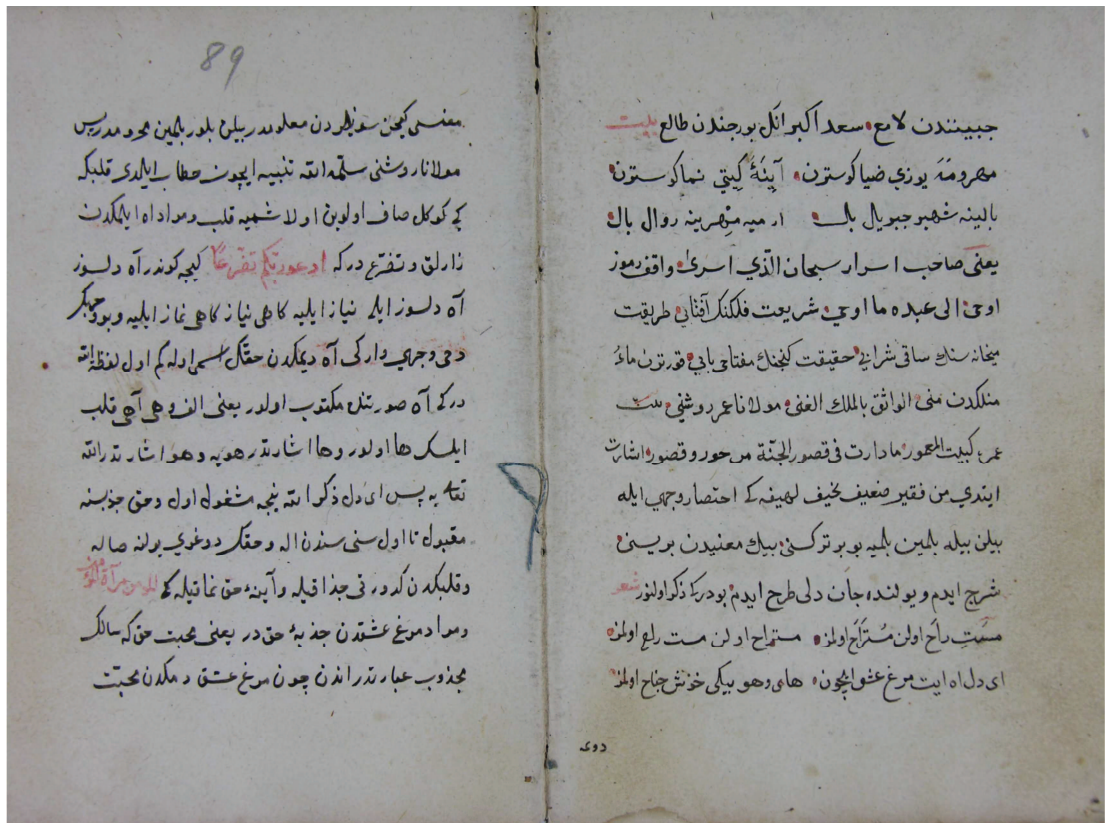 جبينندن لامع سعد اكبر انك بورجندن طالع بيت
مهر و مَهَ يوزي ضيا كوسترن آينَهٔ كيتي نما كوسترن
بالينه شهبر جبريل بال ار ميه مهرينه روال بال
يعنى صاحب اسرار سبحان الذي اسرى واقف رموز
اوحى الى عبده ما اوحى شريعت فلكنك آفتابى طريقت
ميخانه سنك ساقئ شرابى حقيقت كنجنك مفتاح بابى قورتون ماء
منلكدن منى الواثق بالملك الغنى مولانا عمر روشنى بيت
عمره كبيت المعمور ما دارت فى قصور الجنة من حور و قصور اشارت
ايتدي من فقير ضعيف نحيف لهيفه كه اختصار وجهى ايله
بيلن بيله بلمين بلميه بو بر تركينى بيك معنيدن بريسنى
شرح ايدم و يولنده جان دلى طرح ايدم بودر كه ذكر اولنور شعر
مست راح اولن مُستراح اولمز مستراح اولن مست راح اولمز
اى دل اه ايت مرغ عشق ايچون هاى و هو بيكى خوش جناح اولمز
دوى
89
معنسى كيمن سوزلردن معلومدر بيلن بلور بلمين محرومدر پس
مولانا روشنى سلمه الله تنبيه ايچون خطاب ايلدى قلبكه
كه كوكل صاف اولوبن اولا شميه قلب و مراد اه ايلمكدن
زارلق و تضرع در كه ادعو ربكم تضرعا كيجه كوندر آه دلسوز
آه دلسوز ايله نياز ايليه كاهى نياز كاهى نماز ايليه و بو وجهكه
دخى وجهى وار كى آه ديمكدن حقك اسمى اوله كم اول لفظهٔ الله
در كه آه صورتنده مكتوب اولور يعنى الف و هى آهى قلب
ايلسك ها اولور و ها اشارتدر هويه و هو اشارتدر الله
تعالى يه پس اى دل ذكر الله نيجه مشغول اول و حق جذبسنه
مقبول تا اول سنى سندن اله و حقك دوغرى يولنه صاله
و قلبكدن كدورتى جدا قيله و آينهٔ حق نما قيله كه المؤمن مرآة المؤمن
و مراد مرغ عشقدن جذبهٔ حق در يعنى محبت حق كه سالك
مجذوب عبارتدر اندن چون مرغ عشق دمكدن محبت